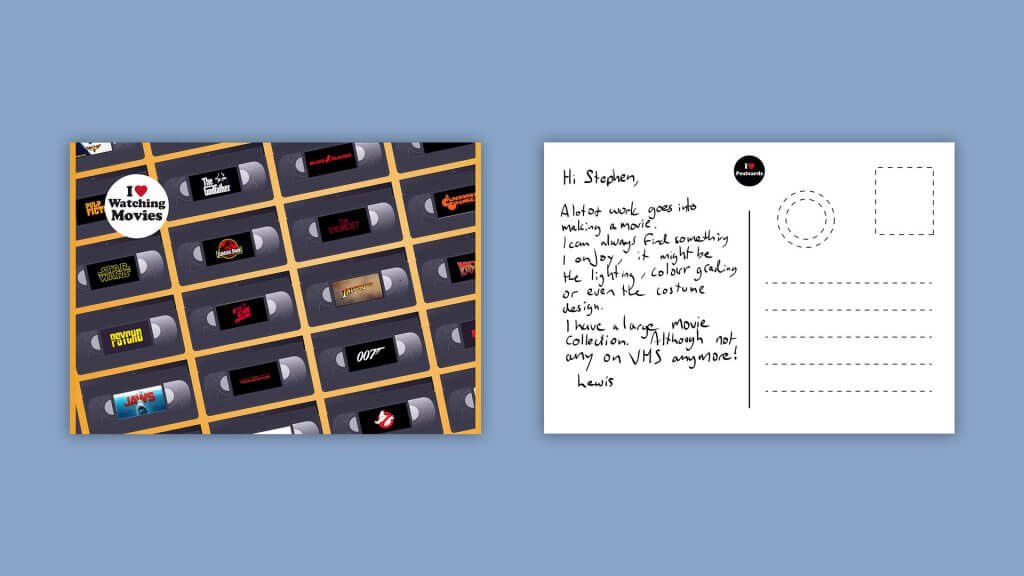 I ❤ Watching
Movies
The
Godfather
BLADE RUNNER
PULP
FICTI
JURASSIC PARK
THE
EXORCIST
STAR
WARS
INDIANA JONES
PSYCHO
007
JAWS
I ❤
Postcards
Hi Stephen,
A lot of work goes into
making a movie.
I can always find something
I enjoy, it might be
the lighting, colour grading
or even the costume
design.
I have a large movie
collection. Although not
any on VHS anymore!
Lewis